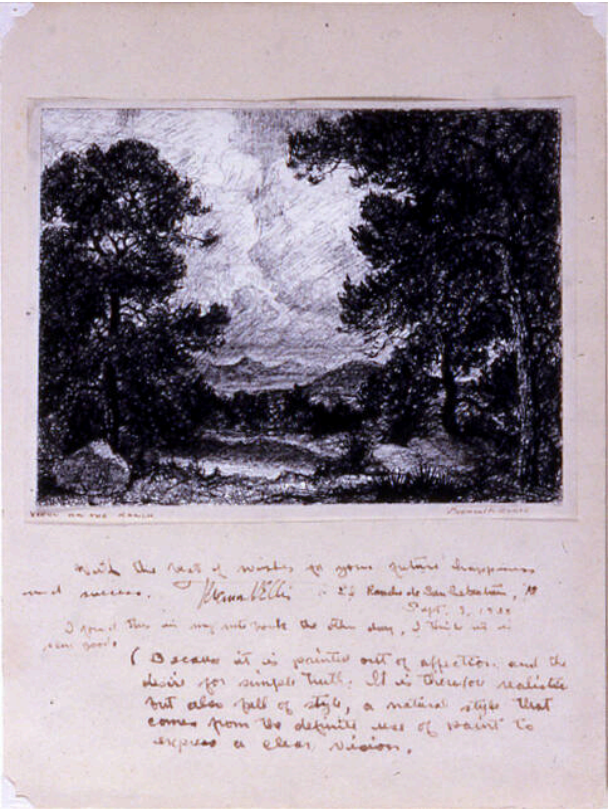 VIEW ON THE RANCH
With the best of wishes for your future happiness
and success. El Rancho de San Sebastian,
Sept. 3, 19
I found this in my note book the other day, I think it is
very good:
( Because it is painted out of affection and the
desire for simple truth. It is therefor realistic
but also full of style, a natural style that
comes from the definite use of paint to
express a clear vision.